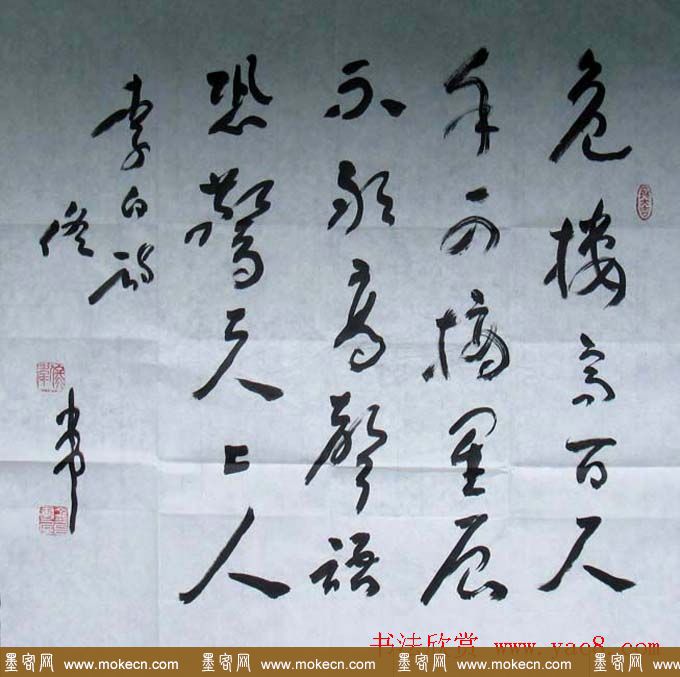 危樓高百尺
手可摘星辰
不敢高聲語
恐驚天上人
李白詩
书法欣赏 www.yac8.com
墨客网 www.mokecn.com 墨客网 www.mokecn.com 墨客网 www.mokecn.com